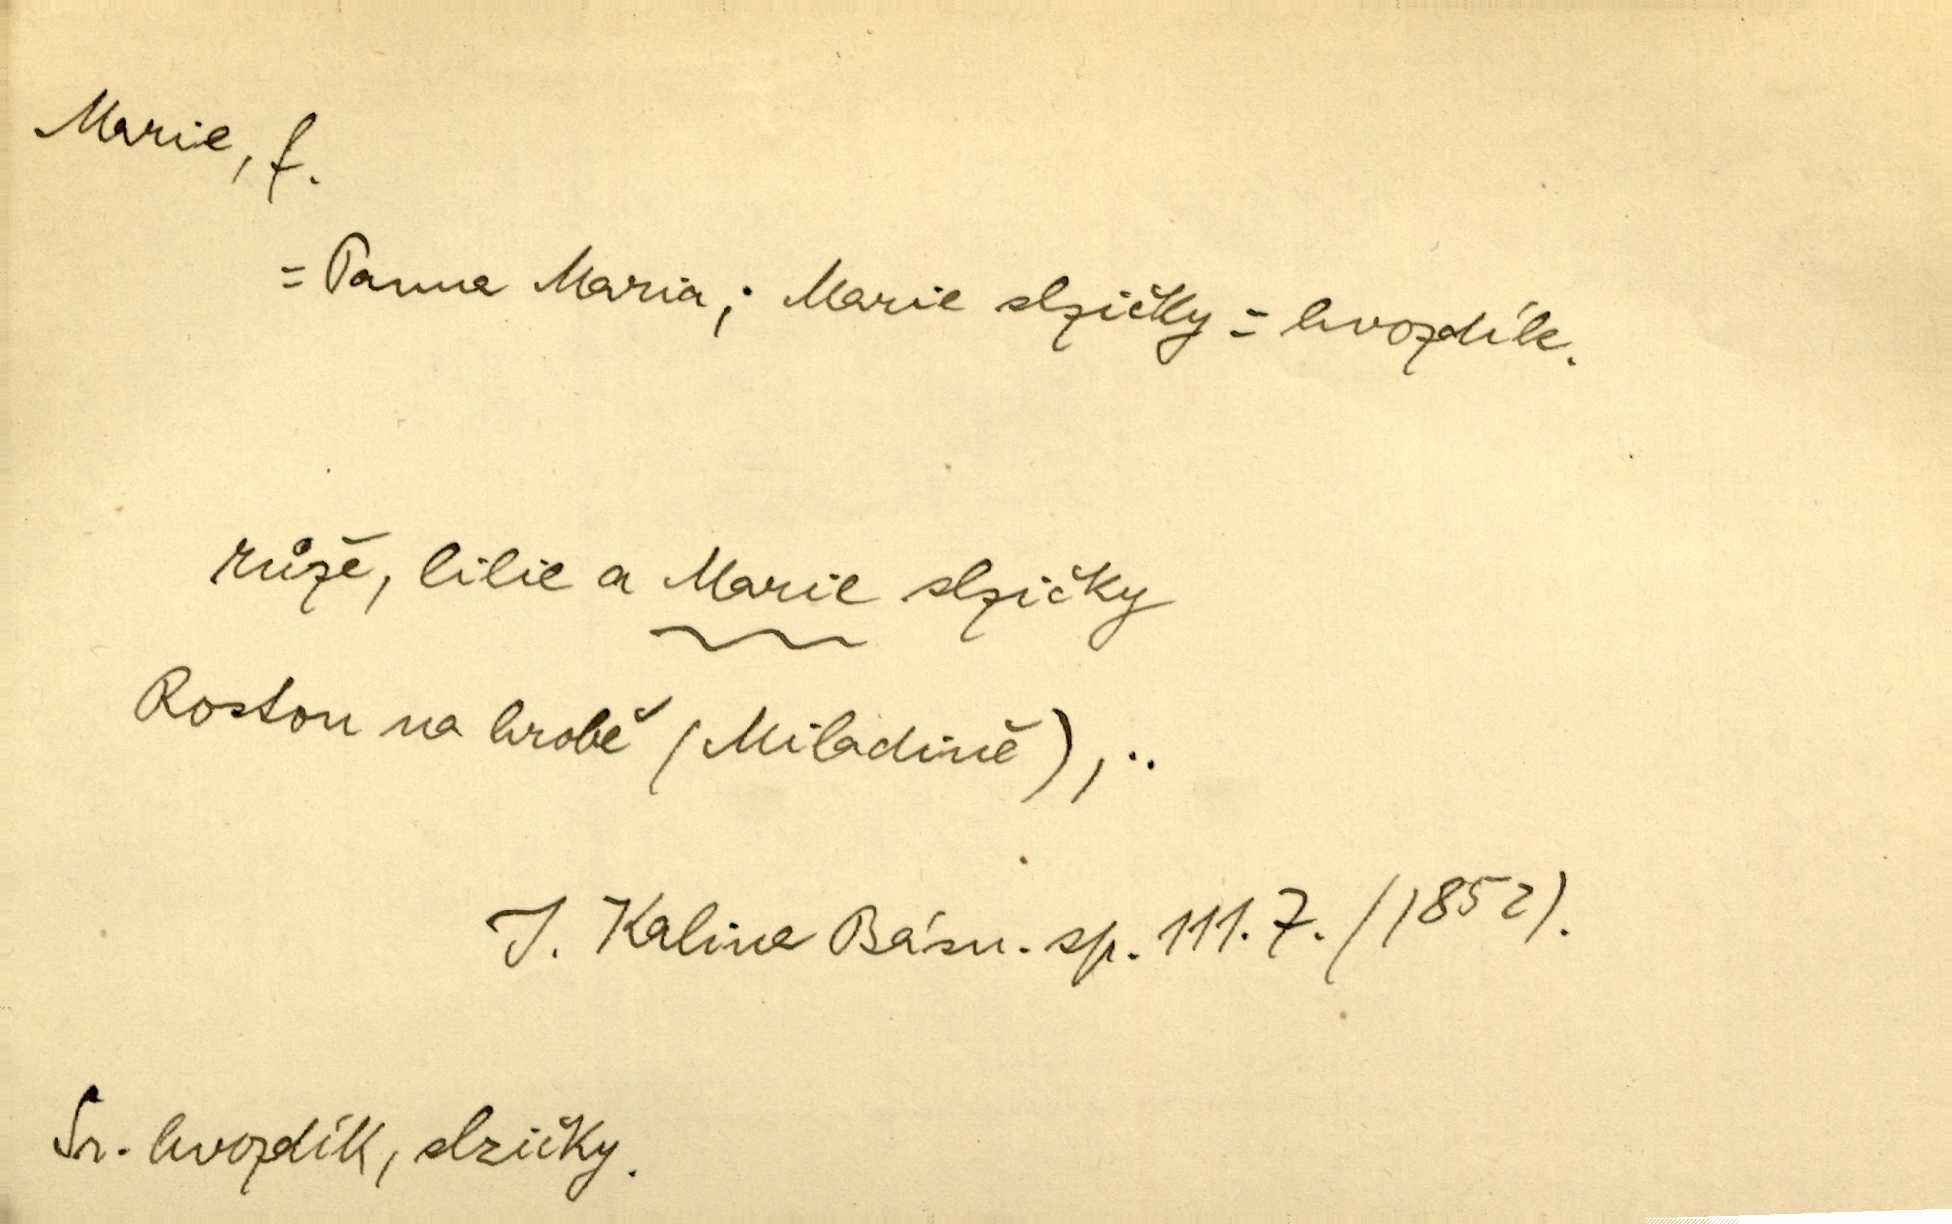 Marie, f.
= Panna Maria; Marie slzičky = hvozdík.
růže, lilie a Marie slzičky
Rostou na hrobě (Miladině), ..
J. Kalina Básn. sp. 111. 7. (1852).
Sr. hvozdík, slzičky.